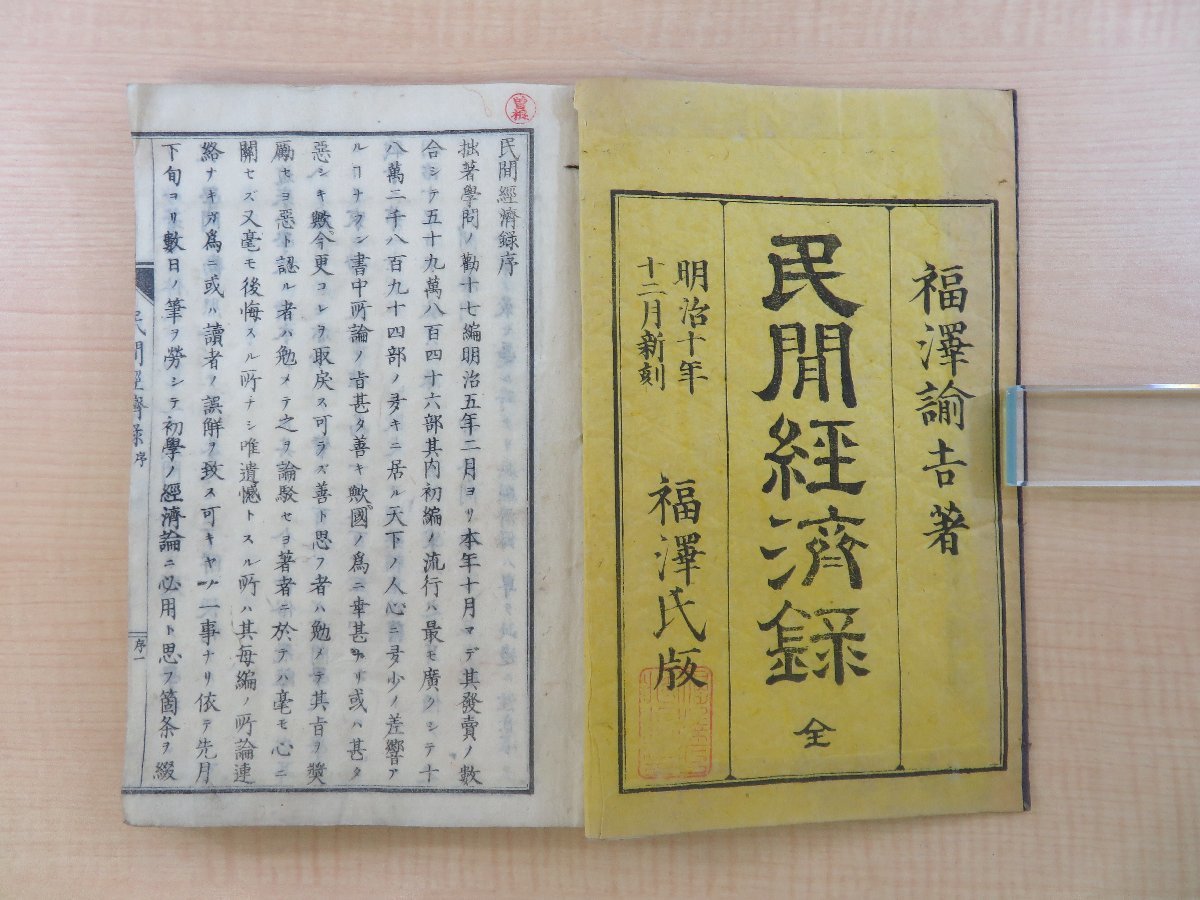 福澤諭吉著
民間經濟録
全
明治十年
十二月新刻
福澤氏版
民間經濟録序
拙著學問ノ勸十七編明治五年二月ヨリ本年十月マデ其發賣ノ數
合シテ五十九萬八百四十六部其内初編ノ流行ハ最モ廣クシテ十
八萬二千八百九十四部ノ多キニ居ル天下ノ人心ニ多少ノ差響ア
ルヿナラン書中所論ノ旨甚タ善キ歟國ノ爲ニ幸甚ナリ或ハ甚タ
惡シキ歟今更コレヲ取戻ス可ラズ善ト思フ者ハ勉メテ其旨ヲ奬
勵セヨ惡ト認ル者ハ勉メテ之ヲ論駁セヨ著者ニ於テハ毫モ心ニ
關セズ又毫モ後悔スル所ナシ唯遺憾トスル所ハ其毎編ノ所論連
絡ナキガ爲ニ或ハ讀者ノ誤解ヲ致ス可キヤノ一事ナリ依テ先月
下旬ヨリ數日ノ筆ヲ勞シテ初學ノ經濟論ニ必用ト思フ箇条ヲ綴
民間經濟録 序
序一